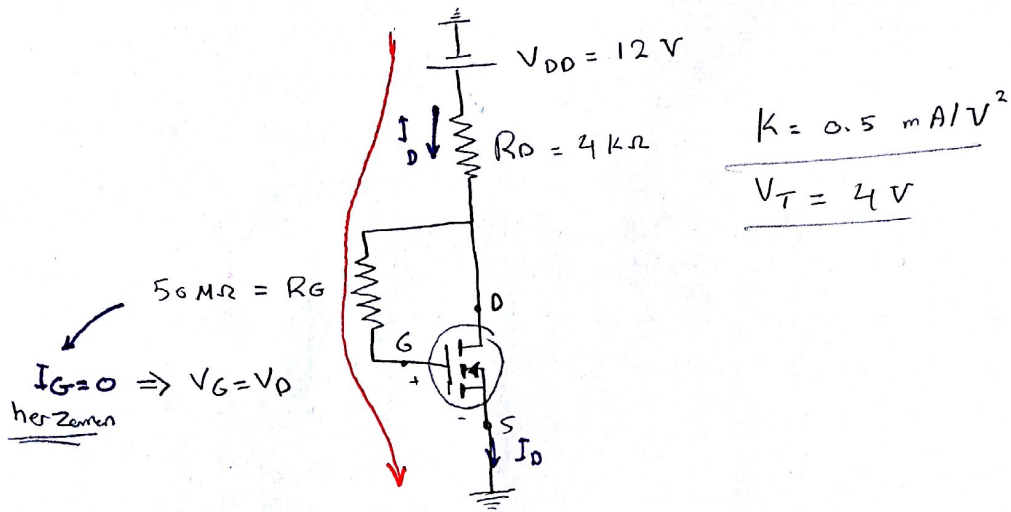 V_DD = 12 V
I_D
R_D = 4 kΩ
K = 0.5 mA/V²
V_T = 4 V
50 MΩ = R_G
D
G
+
-
S
I_G=0 ⇒ V_G=V_D
her zaman
I_D